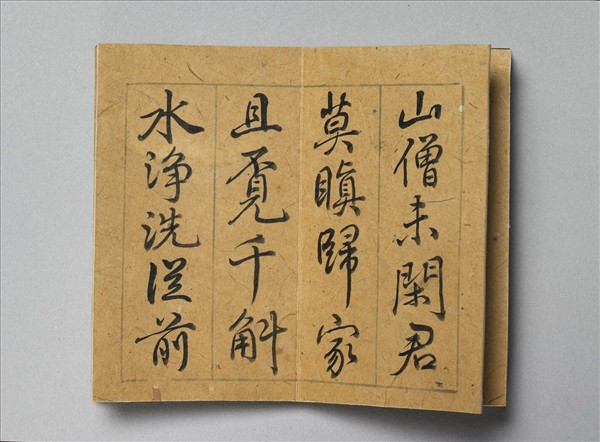 山僧未閑君
莫瞋歸家
且覓千斛
水淨洗從前